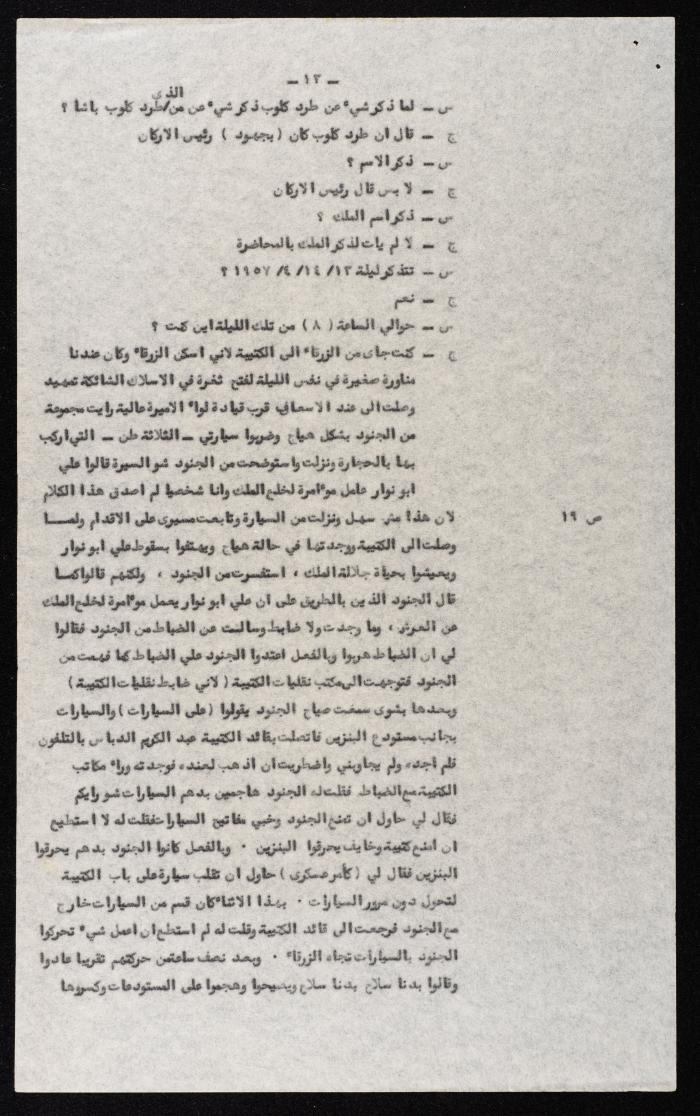 – ١٣ –
س – لما ذكر شيء عن طرد كلوب ذكر شيء عن من/الذي طرد كلوب باشا ؟
ج – قال ان طرد كلوب كان ( بجهود ) رئيس الاركان
س – ذكر الاسم ؟
ج – لا بس قال رئيس الاركان
س – ذكر اسم الملك ؟
ج – لا لم يات لذكر الملك بالمحاضرة
س – تتذكر ليلة ١٣/ ١٤/ ٤/ ١٩٥٧ ؟
ج – نعم
س – حوالي الساعة ( ٨ ) من تلك الليلة اين كنت ؟
ج – كنت جاي من الزرقاء الى الكتيبة لاني اسكن الزرقاء وكان عندنا
مناورة صغيرة في نفس الليلة لفتح ثغرة في الاسلاك الشائكة تمهيد
وصلت الى عند الاسعاف قرب قيادة لواء الاميرة عالية رايت مجموعة
من الجنود بشكل هياج وضربوا سيارتي – الثلاثة طن – التي اركب
بها بالحجارة ونزلت واستوضحت من الجنود شو السيرة قالوا علي
ابو نوار عامل موءامرة لخلع الملك وانا شخصيا لم اصدق هذا الكلام
لان هذا مش سهل ونزلت من السيارة وتابعت مسيرى على الاقدام ولمـا
ص ١٩
وصلت الى الكتيبة ووجدتها في حالة هياج ويهتفوا بسقوط علي ابو نوار
ويعيشوا بحياة جلالة الملك ، استفسرت من الجنود ، ولكنهم قالوا كمـا
قال الجنود الذين بالطريق على ان علي ابو نوار يعمل موءامرة لخلع الملك
عن العرش ، وما وجدت ولا ضابط وسالت عن الضباط من الجنود فقالوا
لي ان الضباط هربوا وبالفعل اعتدوا الجنود علي الضباط كما فهمت من
الجنود فتوجهت الى مكتب نقليات الكتيبة ( لاني ضابط نقليات الكتيبة )
وبعدها بشوى سمعت صياح الجنود يقولوا ( على السيارات ) والسيارات
بجانب مستودع البنزين فاتصلت بقائد الكتيبة عبد الكريم الدباس بالتلفون
فلم اجده ولم يجاوبني واضطريت ان اذهب لعنده فوجدته وراء مكاتب
الكتيبة مع الضباط فقلت له الجنود هاجمين بدهم السيارات شو رايكم
فقال لي حاول ان تمنع الجنود وخبي مفاتيح السيارات فقلت له لا استطيع
ان امنع كتيبة وخايف يحرقوا البنزين ٠ وبالفعل كانوا الجنود بدهم يحرقوا
البنزين فقال لي ( كأمر عسكرى ) حاول ان تقلب سيارة على باب الكتيبة
لتحول دون مرور السيارات ٠ بهذا الاثناء كان قسم من السيارات خارج
مع الجنود فرجعت الى قائد الكتيبة وقلت له لم استطع ان اعمل شيء تحركوا
الجنود بالسيارات تجاه الزرقاء ٠ وبعد نصف ساعة من حركتهم تقريبا عادوا
وقالوا بدنا سلاح بدنا سلاح ويصيحوا وهجموا على المستودعات وكسروها